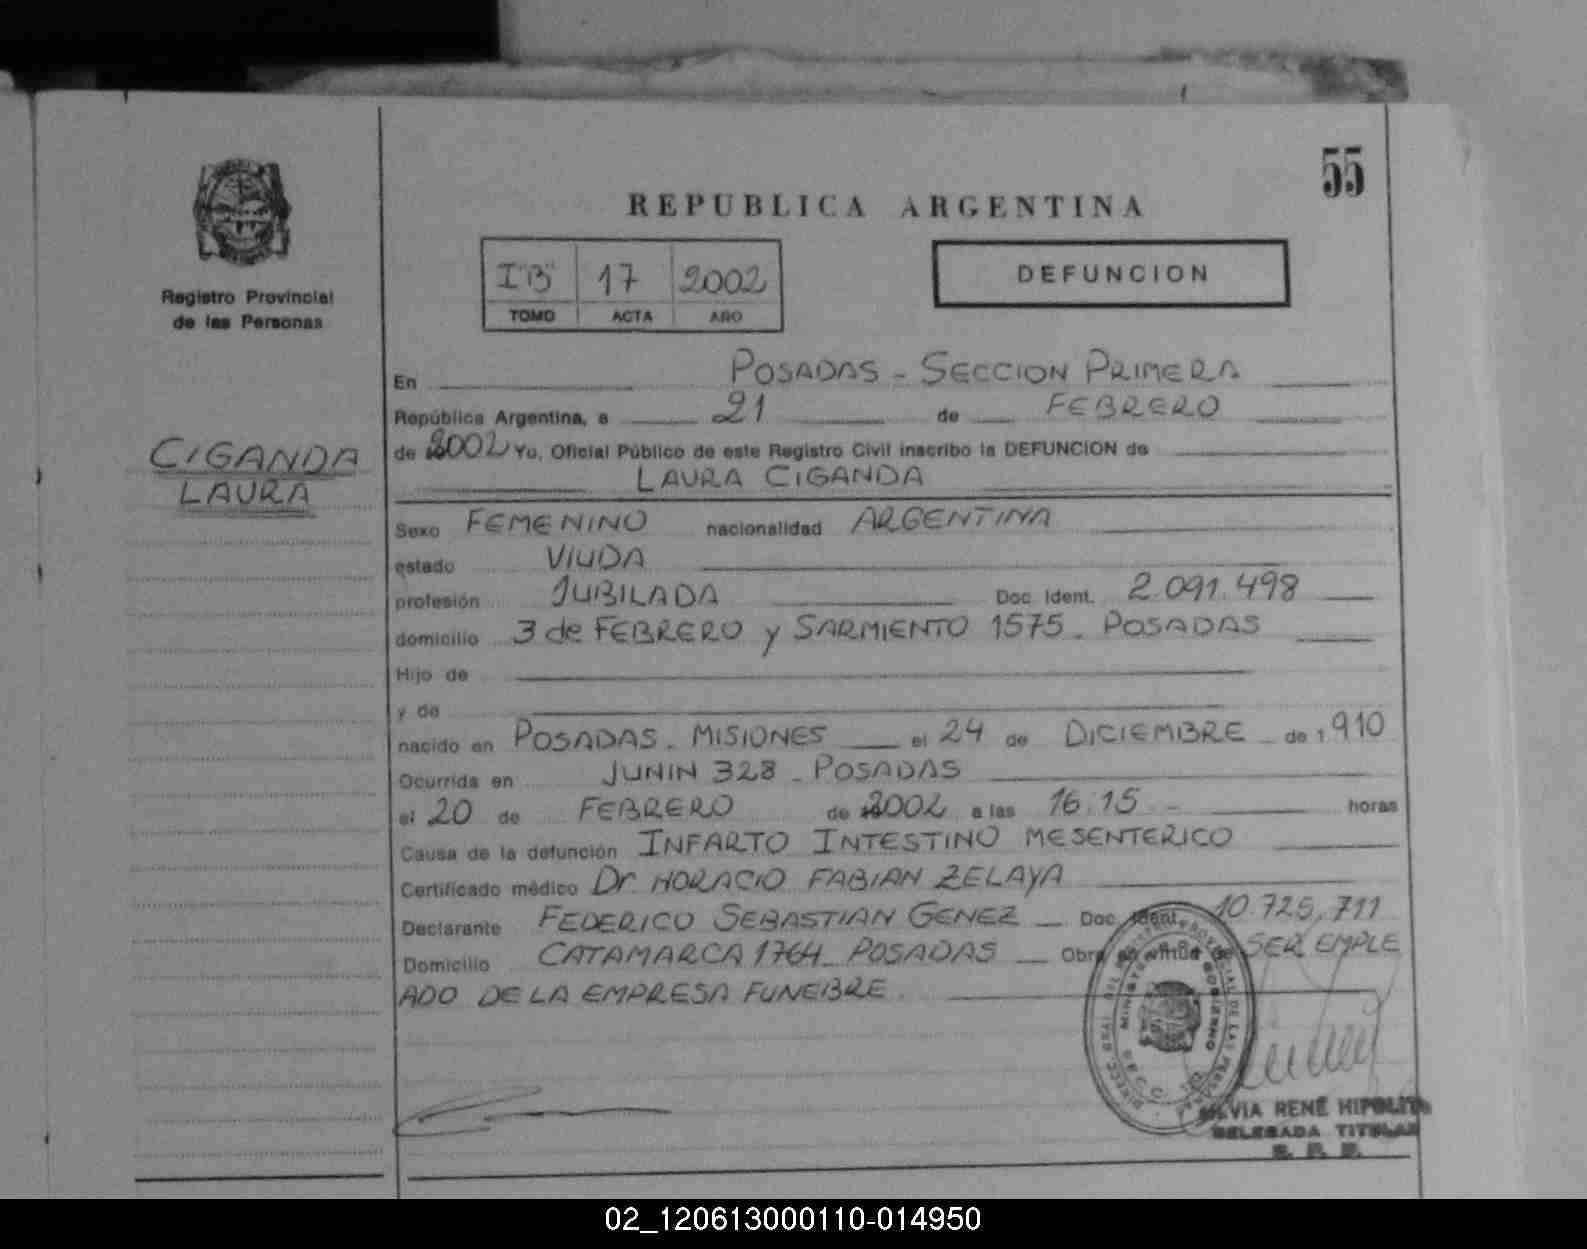 55
REPUBLICA ARGENTINA
Registro Provincial
de las Personas
I "B" 17 2002
TOMO ACTA AÑO
DEFUNCION
CIGANDA
LAURA
En POSADAS - SECCION PRIMERA
República Argentina, a 21 de FEBRERO
de 2002 Yo, Oficial Público de este Registro Civil inscribo la DEFUNCION de
LAURA CIGANDA
Sexo FEMENINO nacionalidad ARGENTINA
estado VIUDA
profesión JUBILADA Doc. Ident. 2.091.498
domicilio 3 de FEBRERO y SARMIENTO 1575 - POSADAS
Hijo de
y de
nacido en POSADAS - MISIONES el 24 de DICIEMBRE de 1.910
Ocurrida en JUNIN 328 - POSADAS
el 20 de FEBRERO de 2002 a las 16:15 - horas
Causa de la defunción INFARTO INTESTINO MESENTERICO
Certificado médico Dr. HORACIO FABIAN ZELAYA
Declarante FEDERICO SEBASTIAN GENEZ Doc. Ident. 10.725.711
Domicilio CATAMARCA 1764 - POSADAS Obra en virtud de SER EMPLE
ADO DE LA EMPRESA FUNEBRE.
MINISTERIO GOBIERNO
SILVIA RENÉ HIPOLITO
DELEGADA TITULAR
02_120613000110-014950